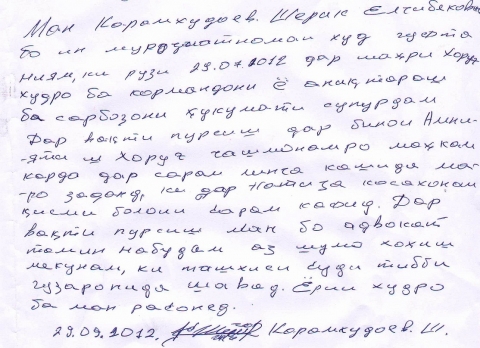 Ман Карамхудоев. Шерик Елчибекович
бо ин муроҷиатномаи худ гуфта
ниям, ки рузи 29.07.2012 дар шаҳри Хоруғ
худро ба кормандони Ё аниқтараш
ба сарбозони ҳукумати супурдам
Дар вақти пурсиш дар бинои Амни-
-яти ш Хоруғ чашмонамро маҳкам
карда дар сарам линга кашида ма-
-ро заданд, ки дар натиҷа косахонаи
қисми болои сарам кафид. Дар
вақти пурсиш ман бо адвокат
таъмин набудам аз шумо хоҳиш
мекунам, ки ташхиси суди тибби
гузаронида шавад. Ёрии худро
ба ман расонед.
29.09.2012. Карамхудоев. Ш.